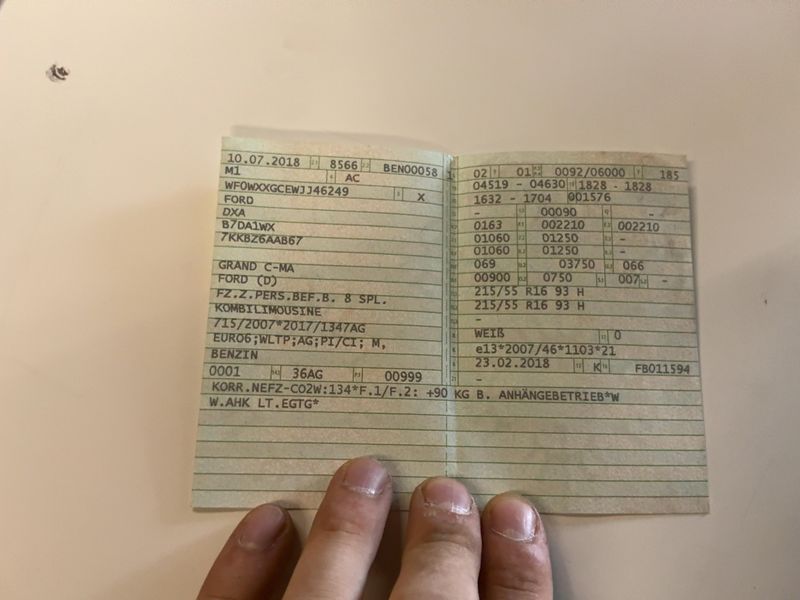 10.07.2018 8566 BEN00058
M1 AC
WF0WXXGCEWJJ46249 X
FORD
DXA
B7DA1WX
7KKBZ6AAB67
GRAND C-MA
FORD (D)
FZ.Z.PERS.BEF.B. 8 SPL.
KOMBILIMOUSINE
715/2007*2017/1347AG
EURO6;WLTP;AG;PI/CI; M,
BENZIN
0001 36AG 00999
02 01 0092/06000 185
04519 - 04630 1828 - 1828
1632 - 1704 001576
- 00090 -
0163 002210 002210
01060 01250 -
01060 01250 -
069 03750 066
00900 0750 007 -
215/55 R16 93 H
215/55 R16 93 H
-
WEIß 0
e13*2007/46*1103*21
23.02.2018 K FB011594
-
KORR.NEFZ-CO2W:134*F.1/F.2: +90 KG B. ANHÄNGEBETRIEB*W
W.AHK LT.EGTG*